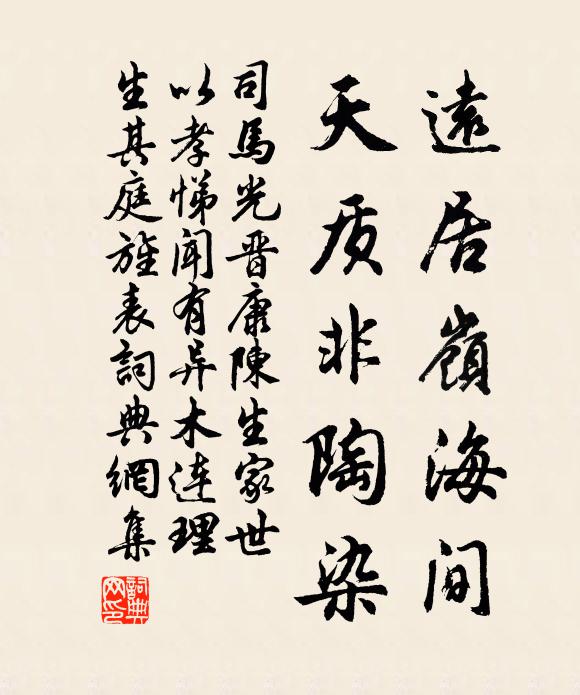 遠居嶺海間
天质非陶染
司馬光晋康陳生家世
以孝悌聞有异木連理
生其庭旌表詞典網集
詞典
网印